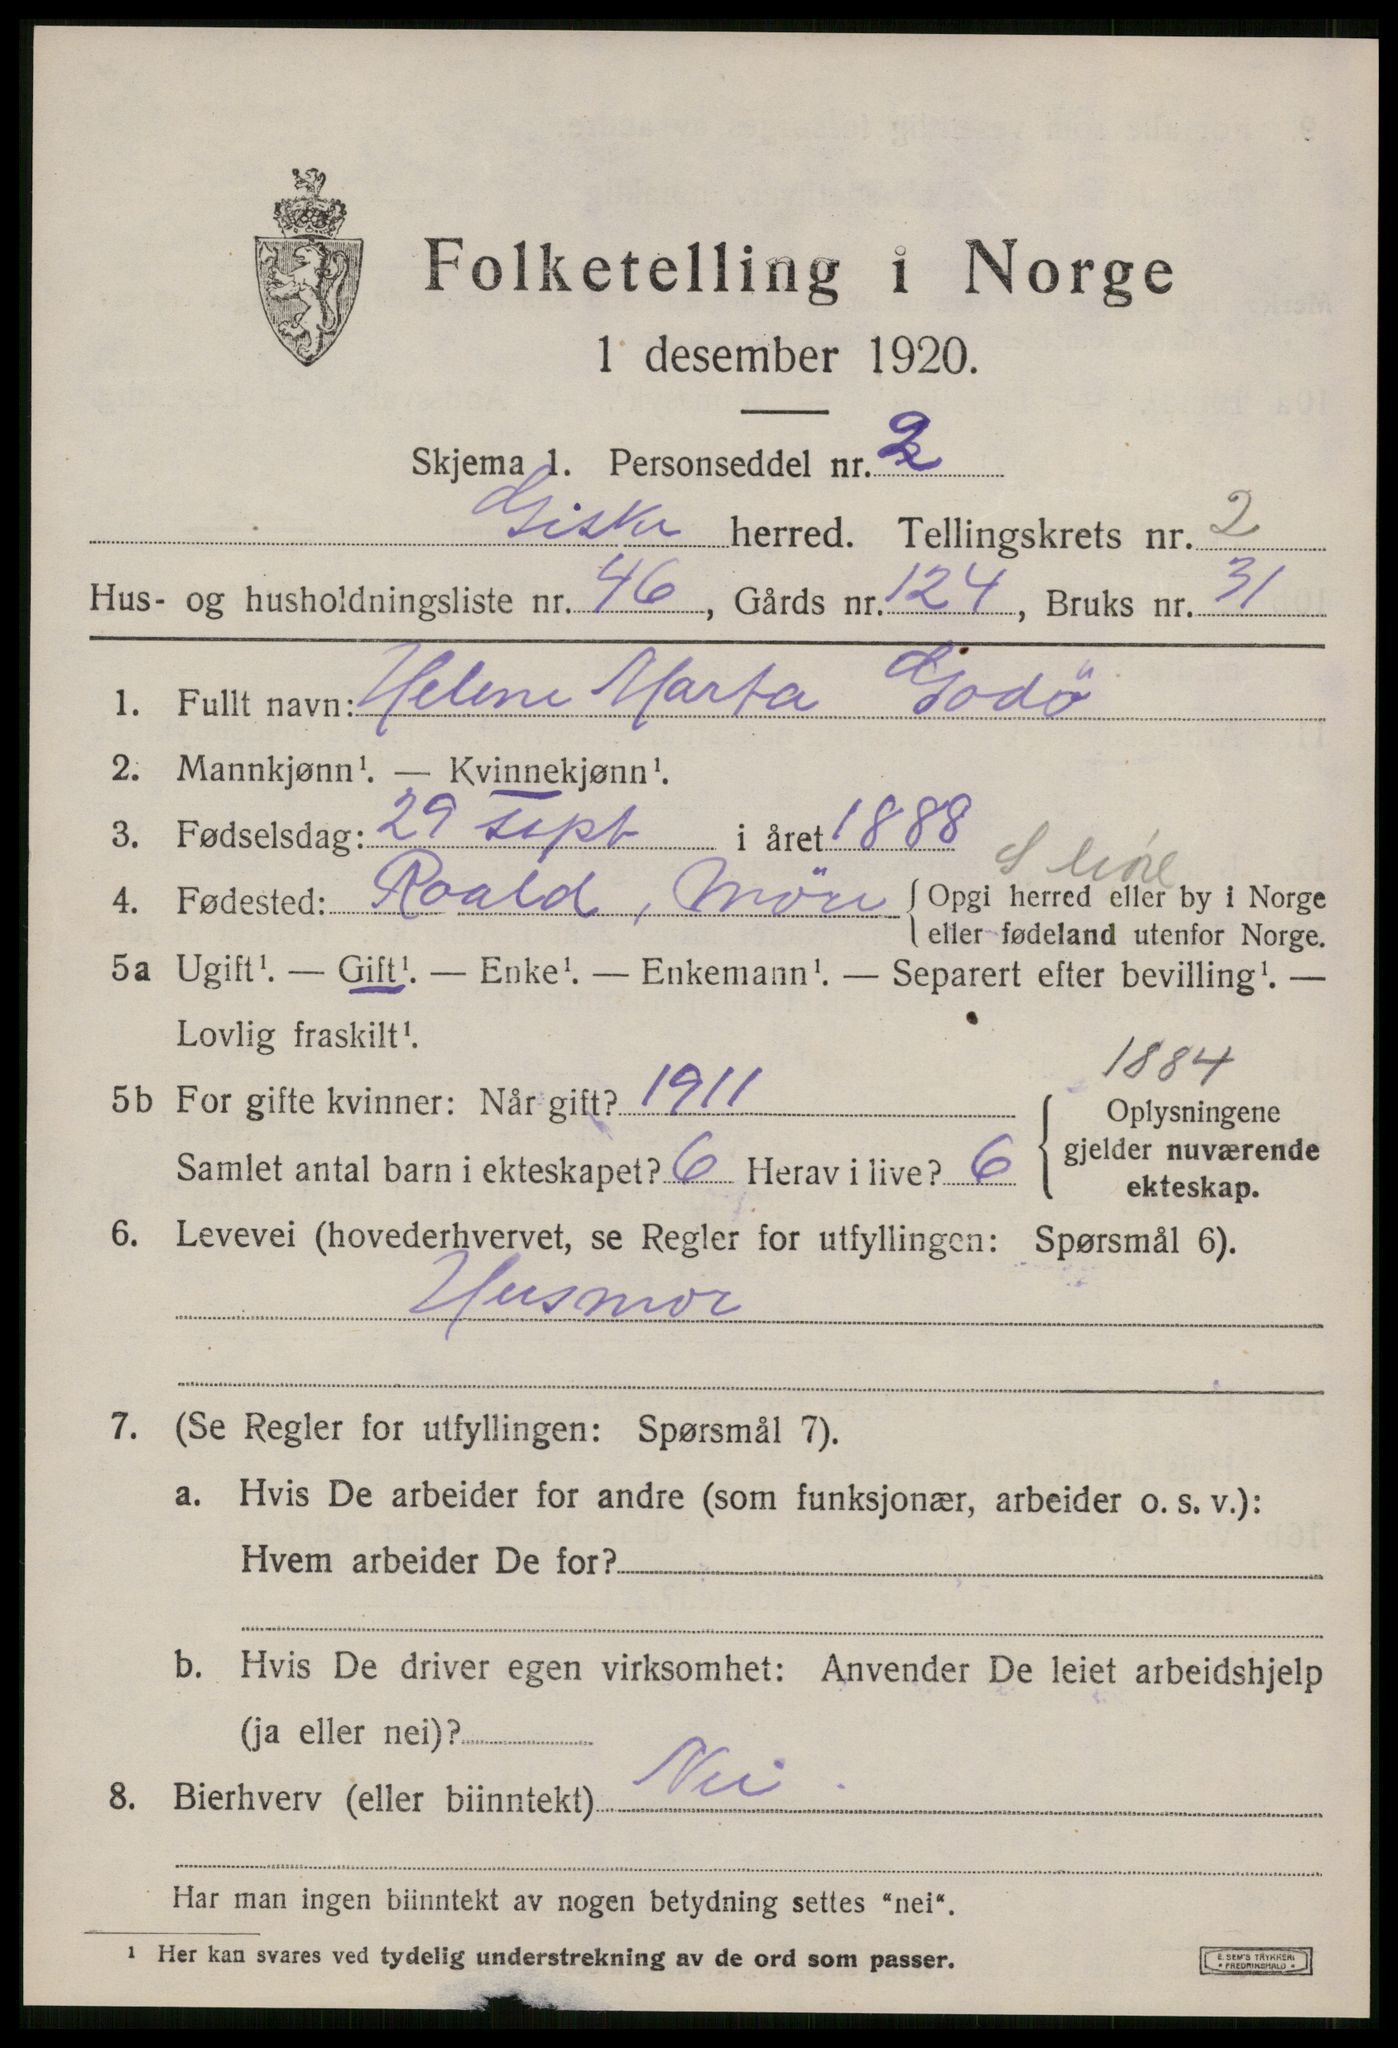 Folketelling i Norge
1 desember 1920.
Skjema 1. Personseddel nr. 2
Giske herred. Tellingskrets nr. 2
Hus- og husholdningsliste nr. 46, Gårds nr. 124, Bruks nr. 31
1. Fullt navn: Helene Marta Godö
2. Mannkjønn¹. — Kvinnekjønn¹.
3. Fødselsdag: 29 sept i året 1888
4. Fødested: Roald, Möre { Opgi herred eller by i Norge
eller fødeland utenfor Norge.
5a Ugift¹. — Gift¹. — Enke¹. — Enkemann¹. — Separert efter bevilling¹. —
Lovlig fraskilt¹.
1884
5b For gifte kvinner: Når gift? 1911
Samlet antal barn i ekteskapet? 6 Herav i live? 6
Oplysningene
gjelder nuværende
ekteskap.
6. Levevei (hovederhvervet, se Regler for utfyllingen: Spørsmål 6).
Husmor
7. (Se Regler for utfyllingen: Spørsmål 7).
a. Hvis De arbeider for andre (som funksjonær, arbeider o. s. v.):
Hvem arbeider De for?
b. Hvis De driver egen virksomhet: Anvender De leiet arbeidshjelp
(ja eller nei)?
8. Bierhverv (eller biinntekt) Nei.
Har man ingen biinntekt av nogen betydning settes “nei“.
¹ Her kan svares ved tydelig understrekning av de ord som passer.
E. SEM'S TRYKKERI
• FREDRIKSHALD •